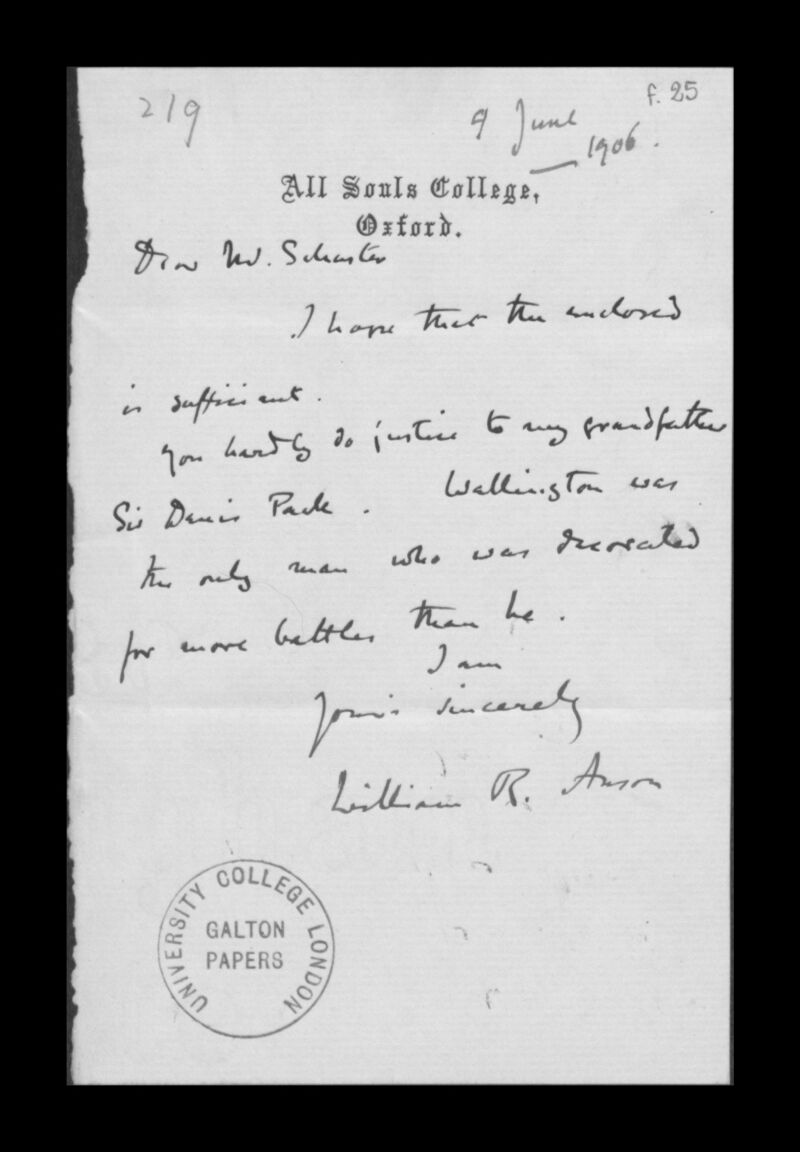 219
f. 25
9 June
1906.
All Souls College,
Oxford.
Dear Mr. Schuster
I hope that the enclosed
is sufficient.
You hardly do justice to my grandfather
Sir Denis Pack. Wellington was
the only man who was decorated
for more battles than he.
I am
Yours sincerely
William R. Anson
UNIVERSITY COLLEGE LONDON
GALTON
PAPERS